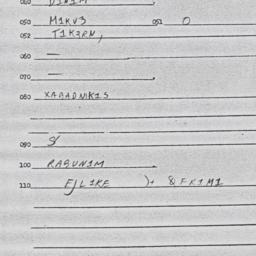 050 M1KV3 051 O
052 T1K3RN,
060 —
070 —
080 XABADNIK1S
090
100 RASUN1M
110 FJL1KE )+ & FK1M1